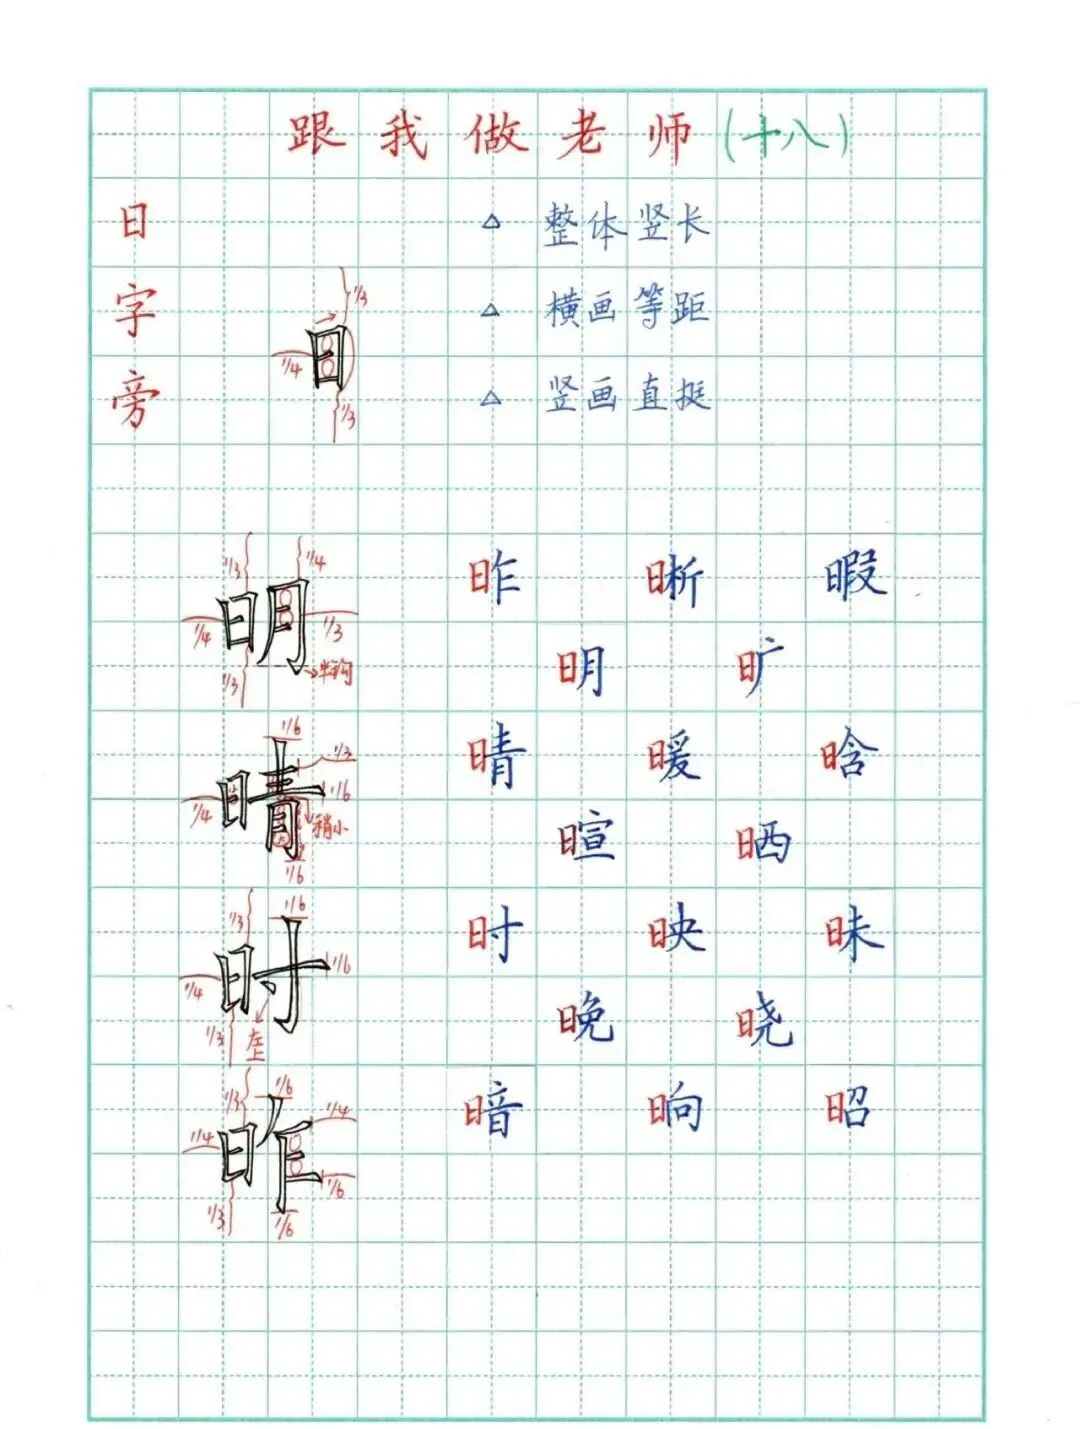 跟我做老师(十八)
日字旁
△ 整体竖长
△ 横画等距
△ 竖画直挺
1/3
1/4
1/3
明
1/3
1/4
1/4
1/3
1/3
半钩
昨 晰 暇
明 旷
晴
1/6
1/3
1/6
1/4
稍小
1/6
晴 暖 晗
暄 晒
时
1/3
1/6
1/4
1/6
1/3
左上
时 映 昧
晚 晓
昨
1/3
1/6
1/4
1/4
1/6
1/3
1/6
暗 晌 昭